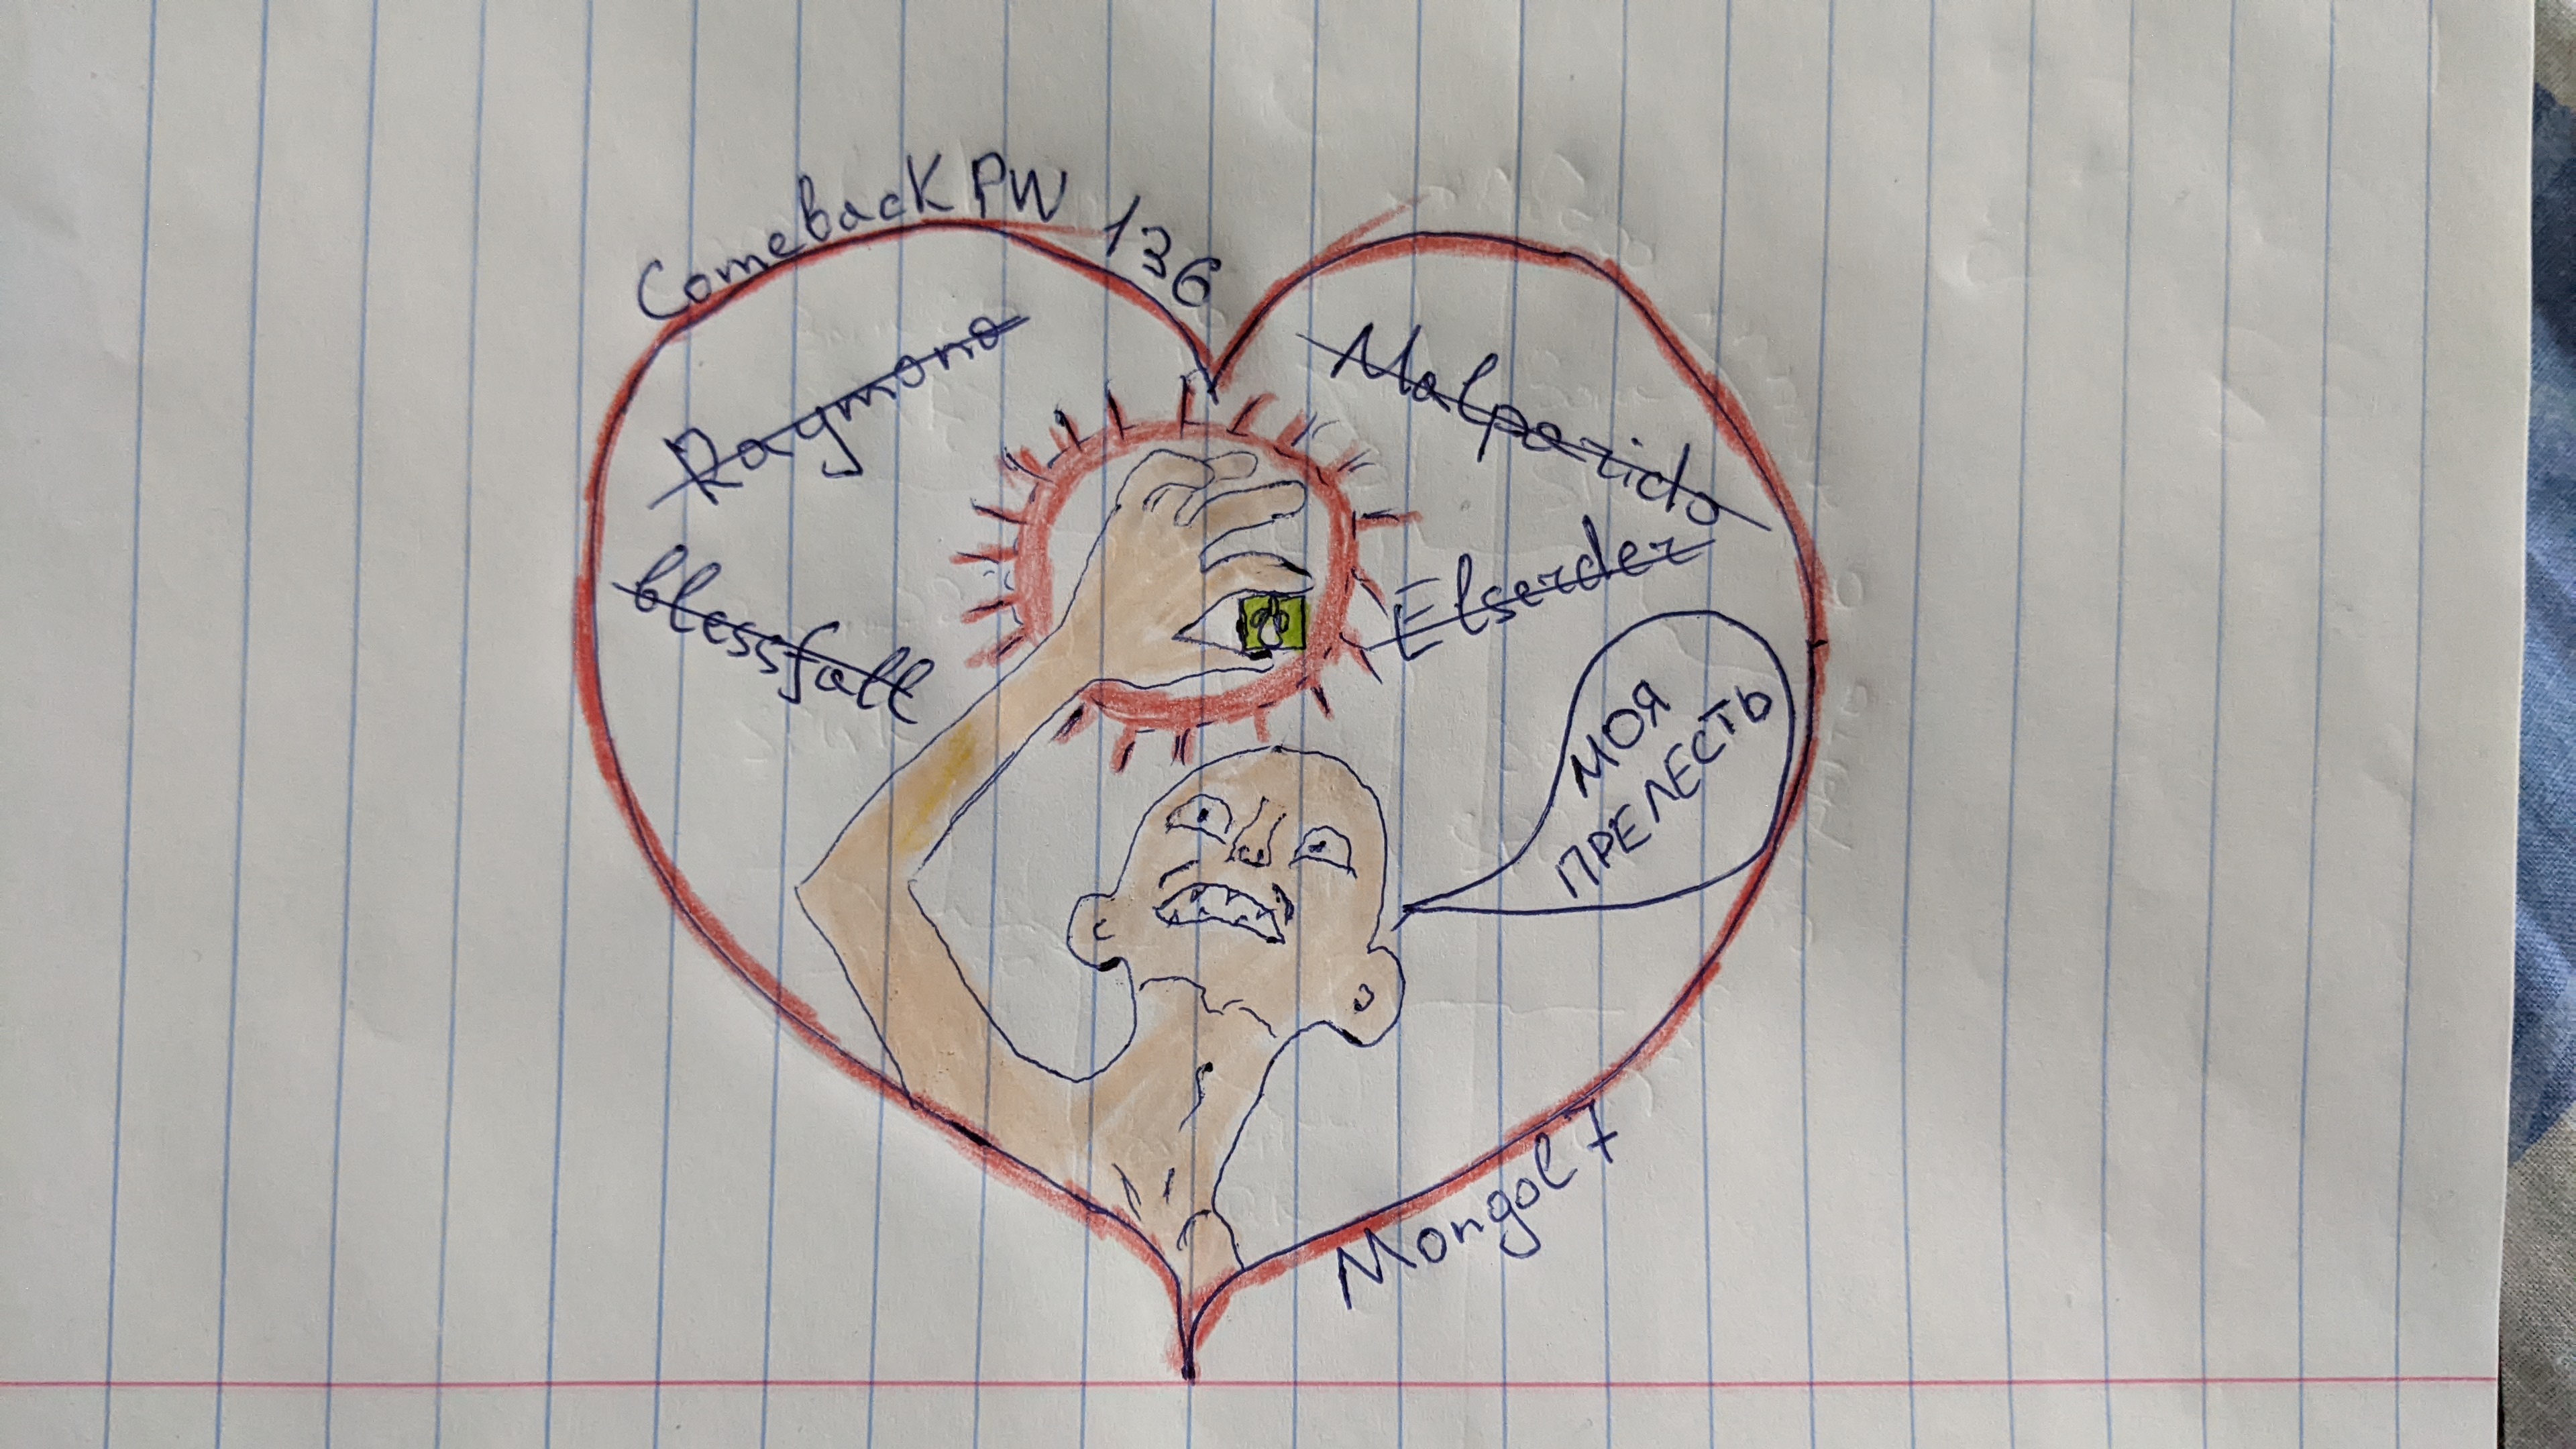 Comeback PW 136
Raymond
Malparido
blessfall
Elserder
МОЯ
ПРЕЛЕСТЬ
Mongol7